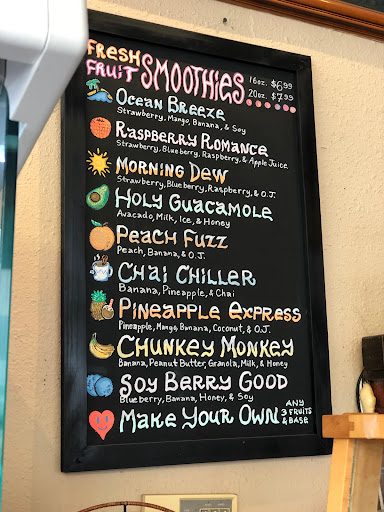 FRESH FRUIT SMOOTHIES 16oz. $6.99
20oz. $7.99
Ocean Breeze
Strawberry, Mango, Banana, & Soy
Raspberry Romance
Strawberry, Blueberry, Raspberry, & Apple Juice
Morning Dew
Strawberry, Blueberry, Raspberry, & O.J.
Holy Guacamole
Avacado, Milk, Ice, & Honey
Peach Fuzz
Peach, Banana, & O.J.
Chai Chiller
Banana, Pineapple, & Chai
Pineapple Express
Pineapple, Mango, Banana, Coconut, & O.J.
Chunkey Monkey
Banana, Peanut Butter, Granola, Milk, & Honey
Soy Berry Good
Blueberry, Banana, Honey, & Soy
Make Your Own ANY 3 FRUITS & BASE